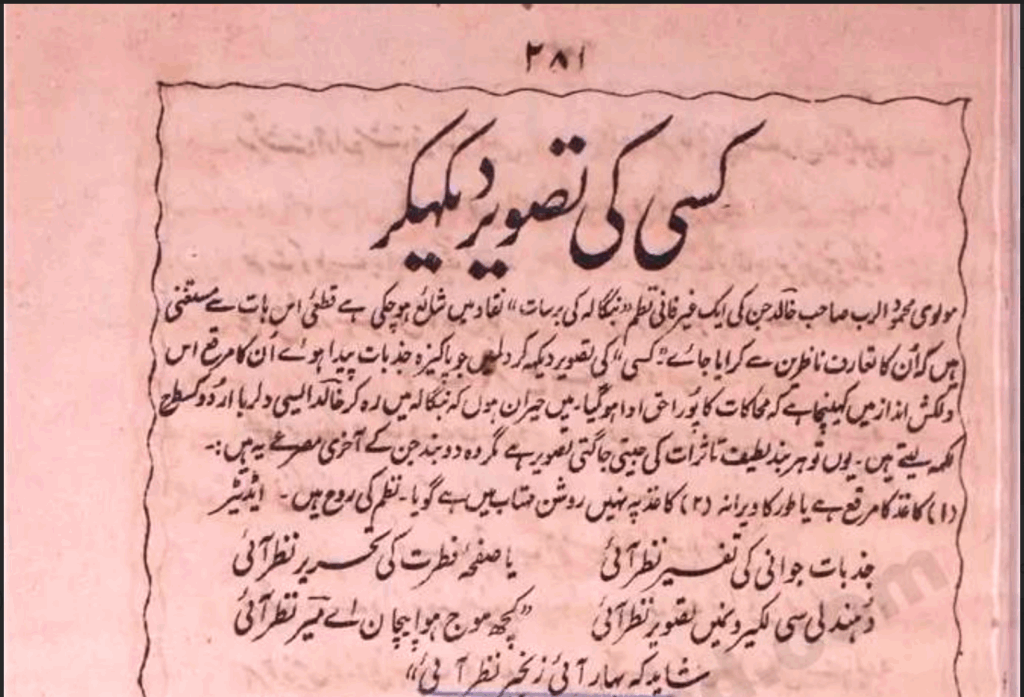 ۲۸۱
کسی کی تصویر دیکہکر
مولوی محمود الرب صاحب خالد جن کی ایک غیر فانی نظم "بنگالہ کی برسات" نقاد میں شائع ہوچکی ہے قطعی اس بات سے مستغنی
ہیں کہ اُن کا تعارف ناظرین سے کرایا جائے۔ "کسی" کی تصویر دیکہہ کر دلمیں جو پاکیزہ جذبات پیدا ہوے اُن کا مرقع اس
دلکش انداز میں کہینچا ہے کہ محاکات کا پورا حق ادا ہوگیا۔ میں حیران ہوں کہ بنگالہ میں رہ کر خالد ایسی دلربا اردو کسطرح
لکہہ لیتے ہیں۔ یوں تو ہر بند لطیف تاثرات کی جیتی جاگتی تصویر ہے مگر وہ دو بند جن کے آخری مصرعے یہ ہیں:۔
(۱) کاغذ کا مرقع ہے یا طور کا ویرانہ (۲) کاغذ پہ نہیں روشن مہتاب میں ہے گویا۔ نظم کی روح ہیں۔ ایڈیٹر
جذبات جوانی کی تفسیر نظر آئی یا صفحۂ فطرت کی تحریر نظر آئی
دُہندلی سی لکیرونمیں تصویر نظر آئی "کچھ موج ہوا پیچان اے میر نظر آئی
شاید کہ بہار آئی زنجیر نظر آئی"